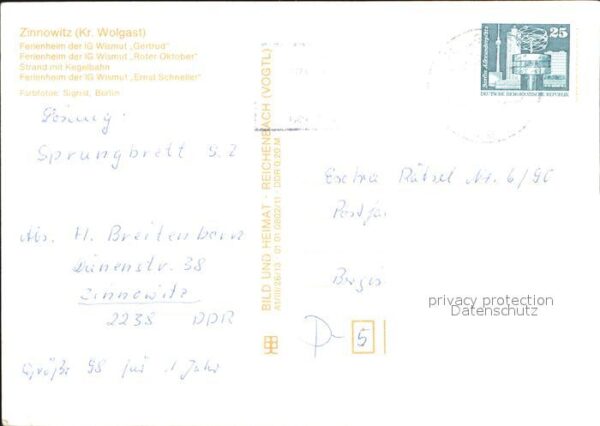 Zinnowitz (Kr. Wolgast)
Ferienheim der IG Wismut „Gertrud“
Ferienheim der IG Wismut „Roter Oktober“
Strand mit Kegelbahn
Ferienheim der IG Wismut „Ernst Schneller“
Farbfotos: Sigrist, Berlin
Lösung:
Sprungbrett S. 2
Abs. H. Breitenborn
Dünenstr. 38
Zinnowitz
2238 DDR
Größe 98 für 1 Jahr
BILD UND HEIMAT · REICHENBACH (VOGTL)
01 01 0802/11 DDR 0,20 M
25
Berlin, Alexanderplatz
DEUTSCHE DEMOKRATISCHE REPUBLIK
Extra Rätsel Nr. 6/90
privacy protection
Datenschutz
D- 5